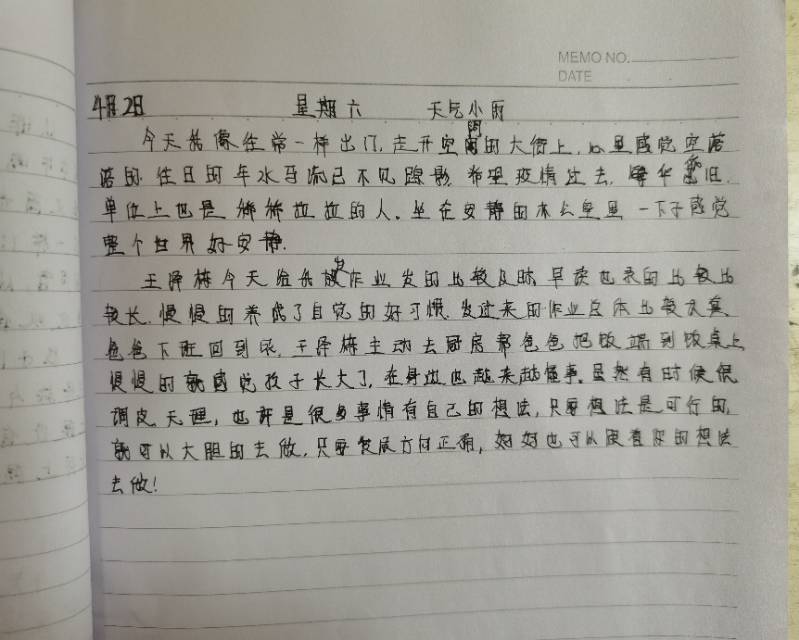 MEMO NO.
DATE
4月2日 星期六 天气小雨
今天我像往常一样出门,走开空阴的大街上,心里感觉空落
落的.往日的车水马流已不见踪影.希望疫情过去,繁华依旧.
单位上也是稀稀拉拉的人.坐在安静的办公室里一下子感觉
整个世界好安静.
王泽栋今天给我发作业发的比较及时,早读也录的比较比
较长.慢慢的养成了自觉的好习惯.发过来的作业总体比较认真
爸爸下班回到家,王泽栋主动去厨房帮爸爸把饭端到饭桌上
慢慢的就感觉孩子长大了,在身边也越来越懂事.虽然有时候很
调皮无理,也许是很多事情有自己的想法,只要想法是可行的,
就可以大胆的去做.只要发展方向正确,妈妈也可以跟着你的想法
去做!